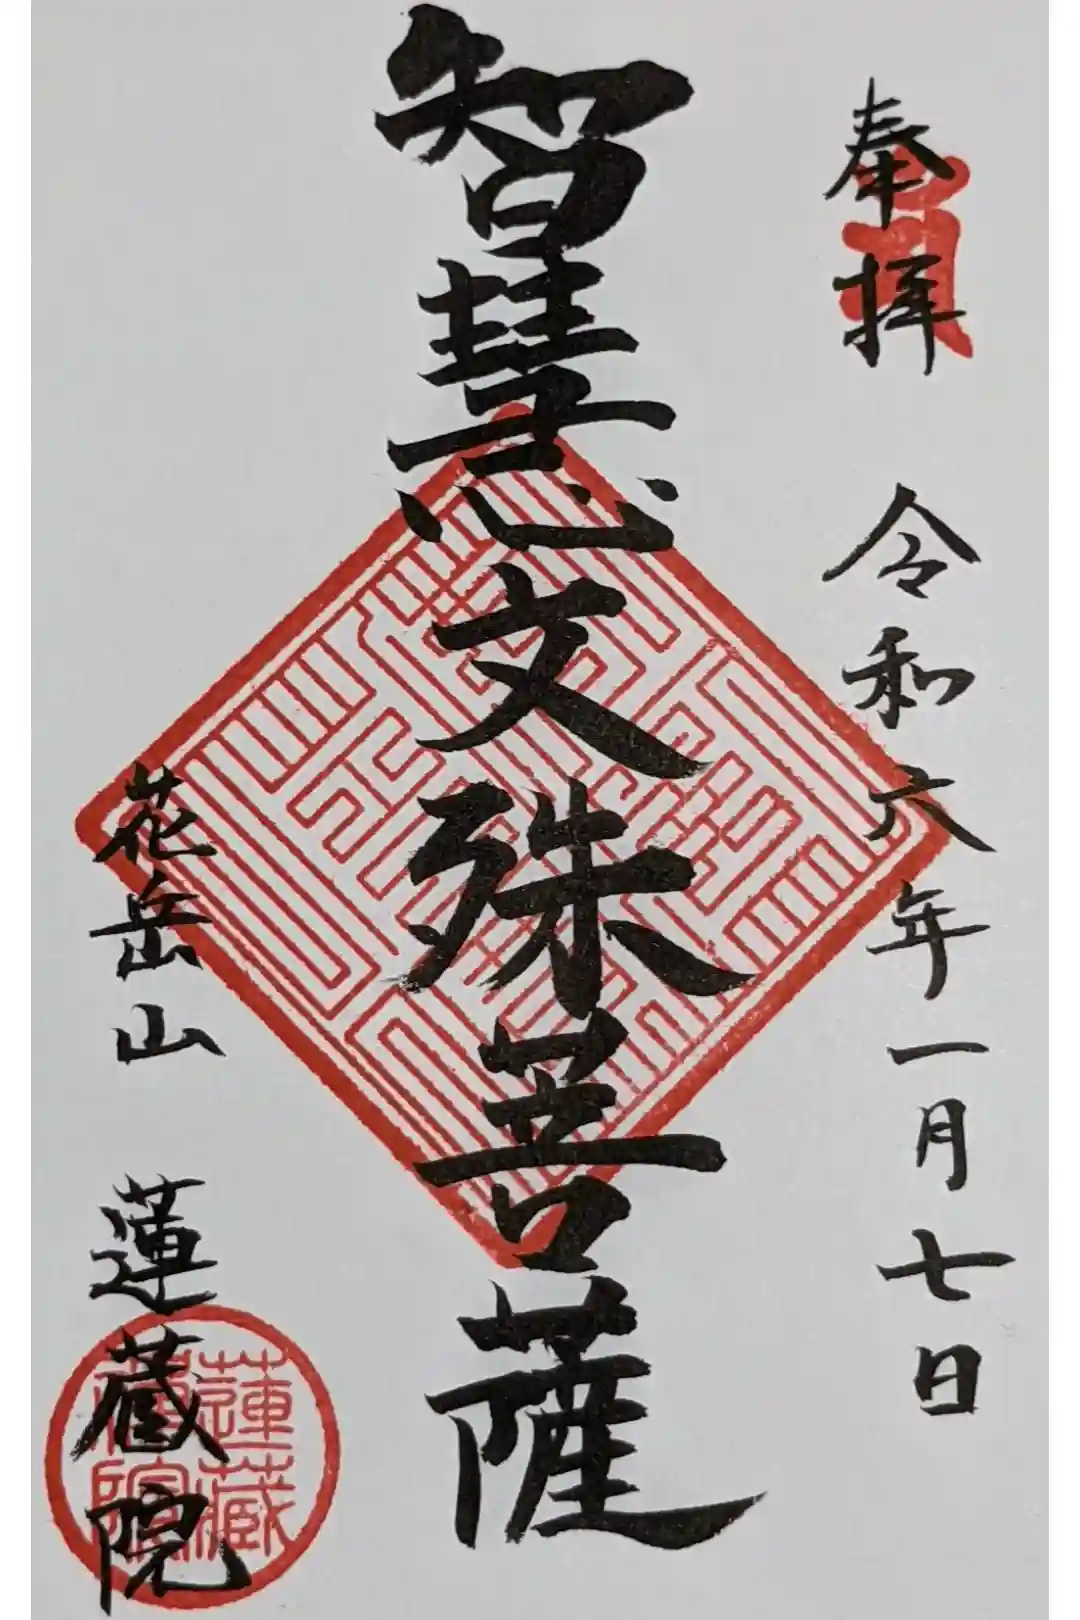 奉拝
令和六年一月七日
智慧文殊菩薩
花岳山
蓮蔵院